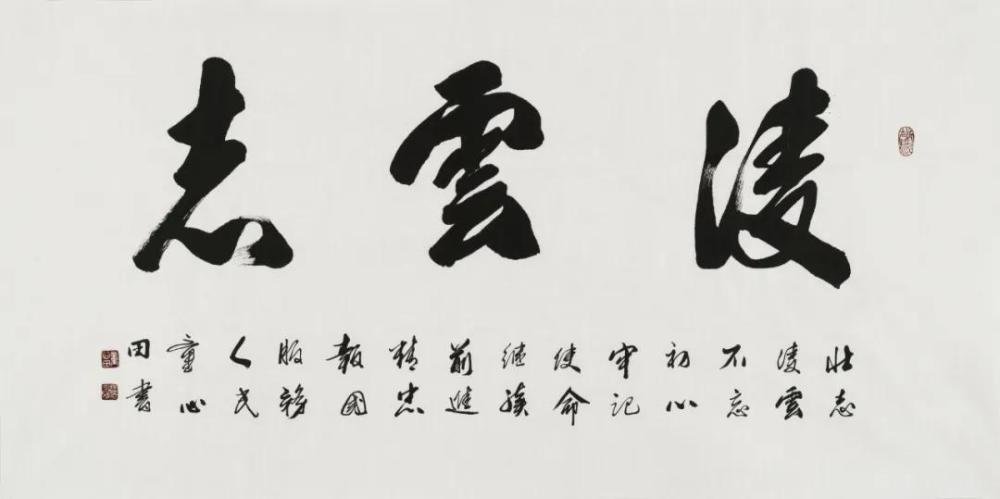 凌雲志
壮志
凌雲
不忘
初心
牢記
使命
継續
前進
精忠
報國
服務
人民
童心
田書